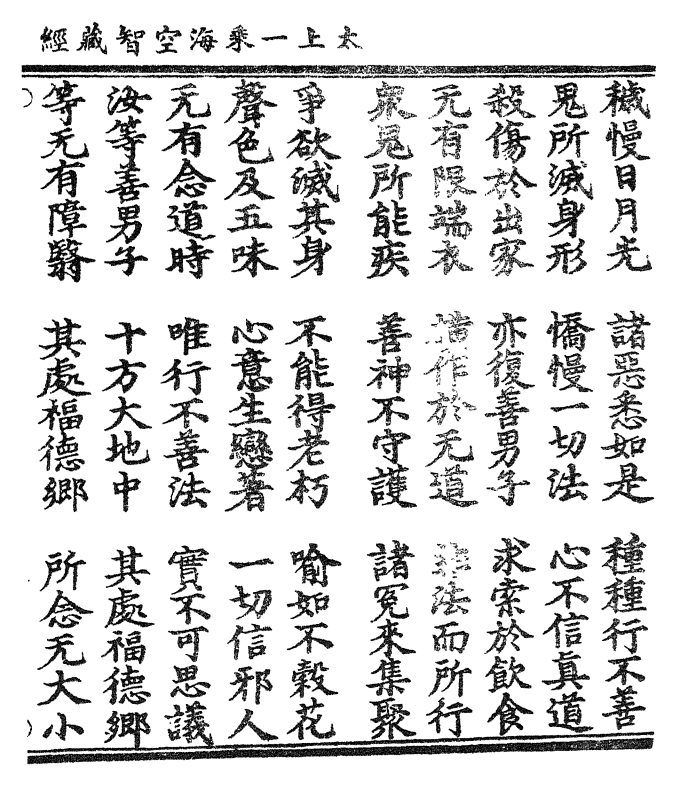 太上一乘海空智藏經
穢慢日月光 諸惡悉如是 種種行不善
鬼所滅身形 憍慢一切法 心不信真道
殺傷於出家 亦復善男子 求索於飲食
无有限端衣 橫作於无道 非法而所行
眾鬼所能疾 善神不守護 諸冤來集聚
爭欲滅其身 不能得老朽 喻如不穀花
聲色及五味 心意生戀著 一切信邪人
无有念道時 唯行不善法 實不可思議
汝等善男子 十方大地中 其處福德鄉
等无有障翳 其處福德鄉 所念无大小